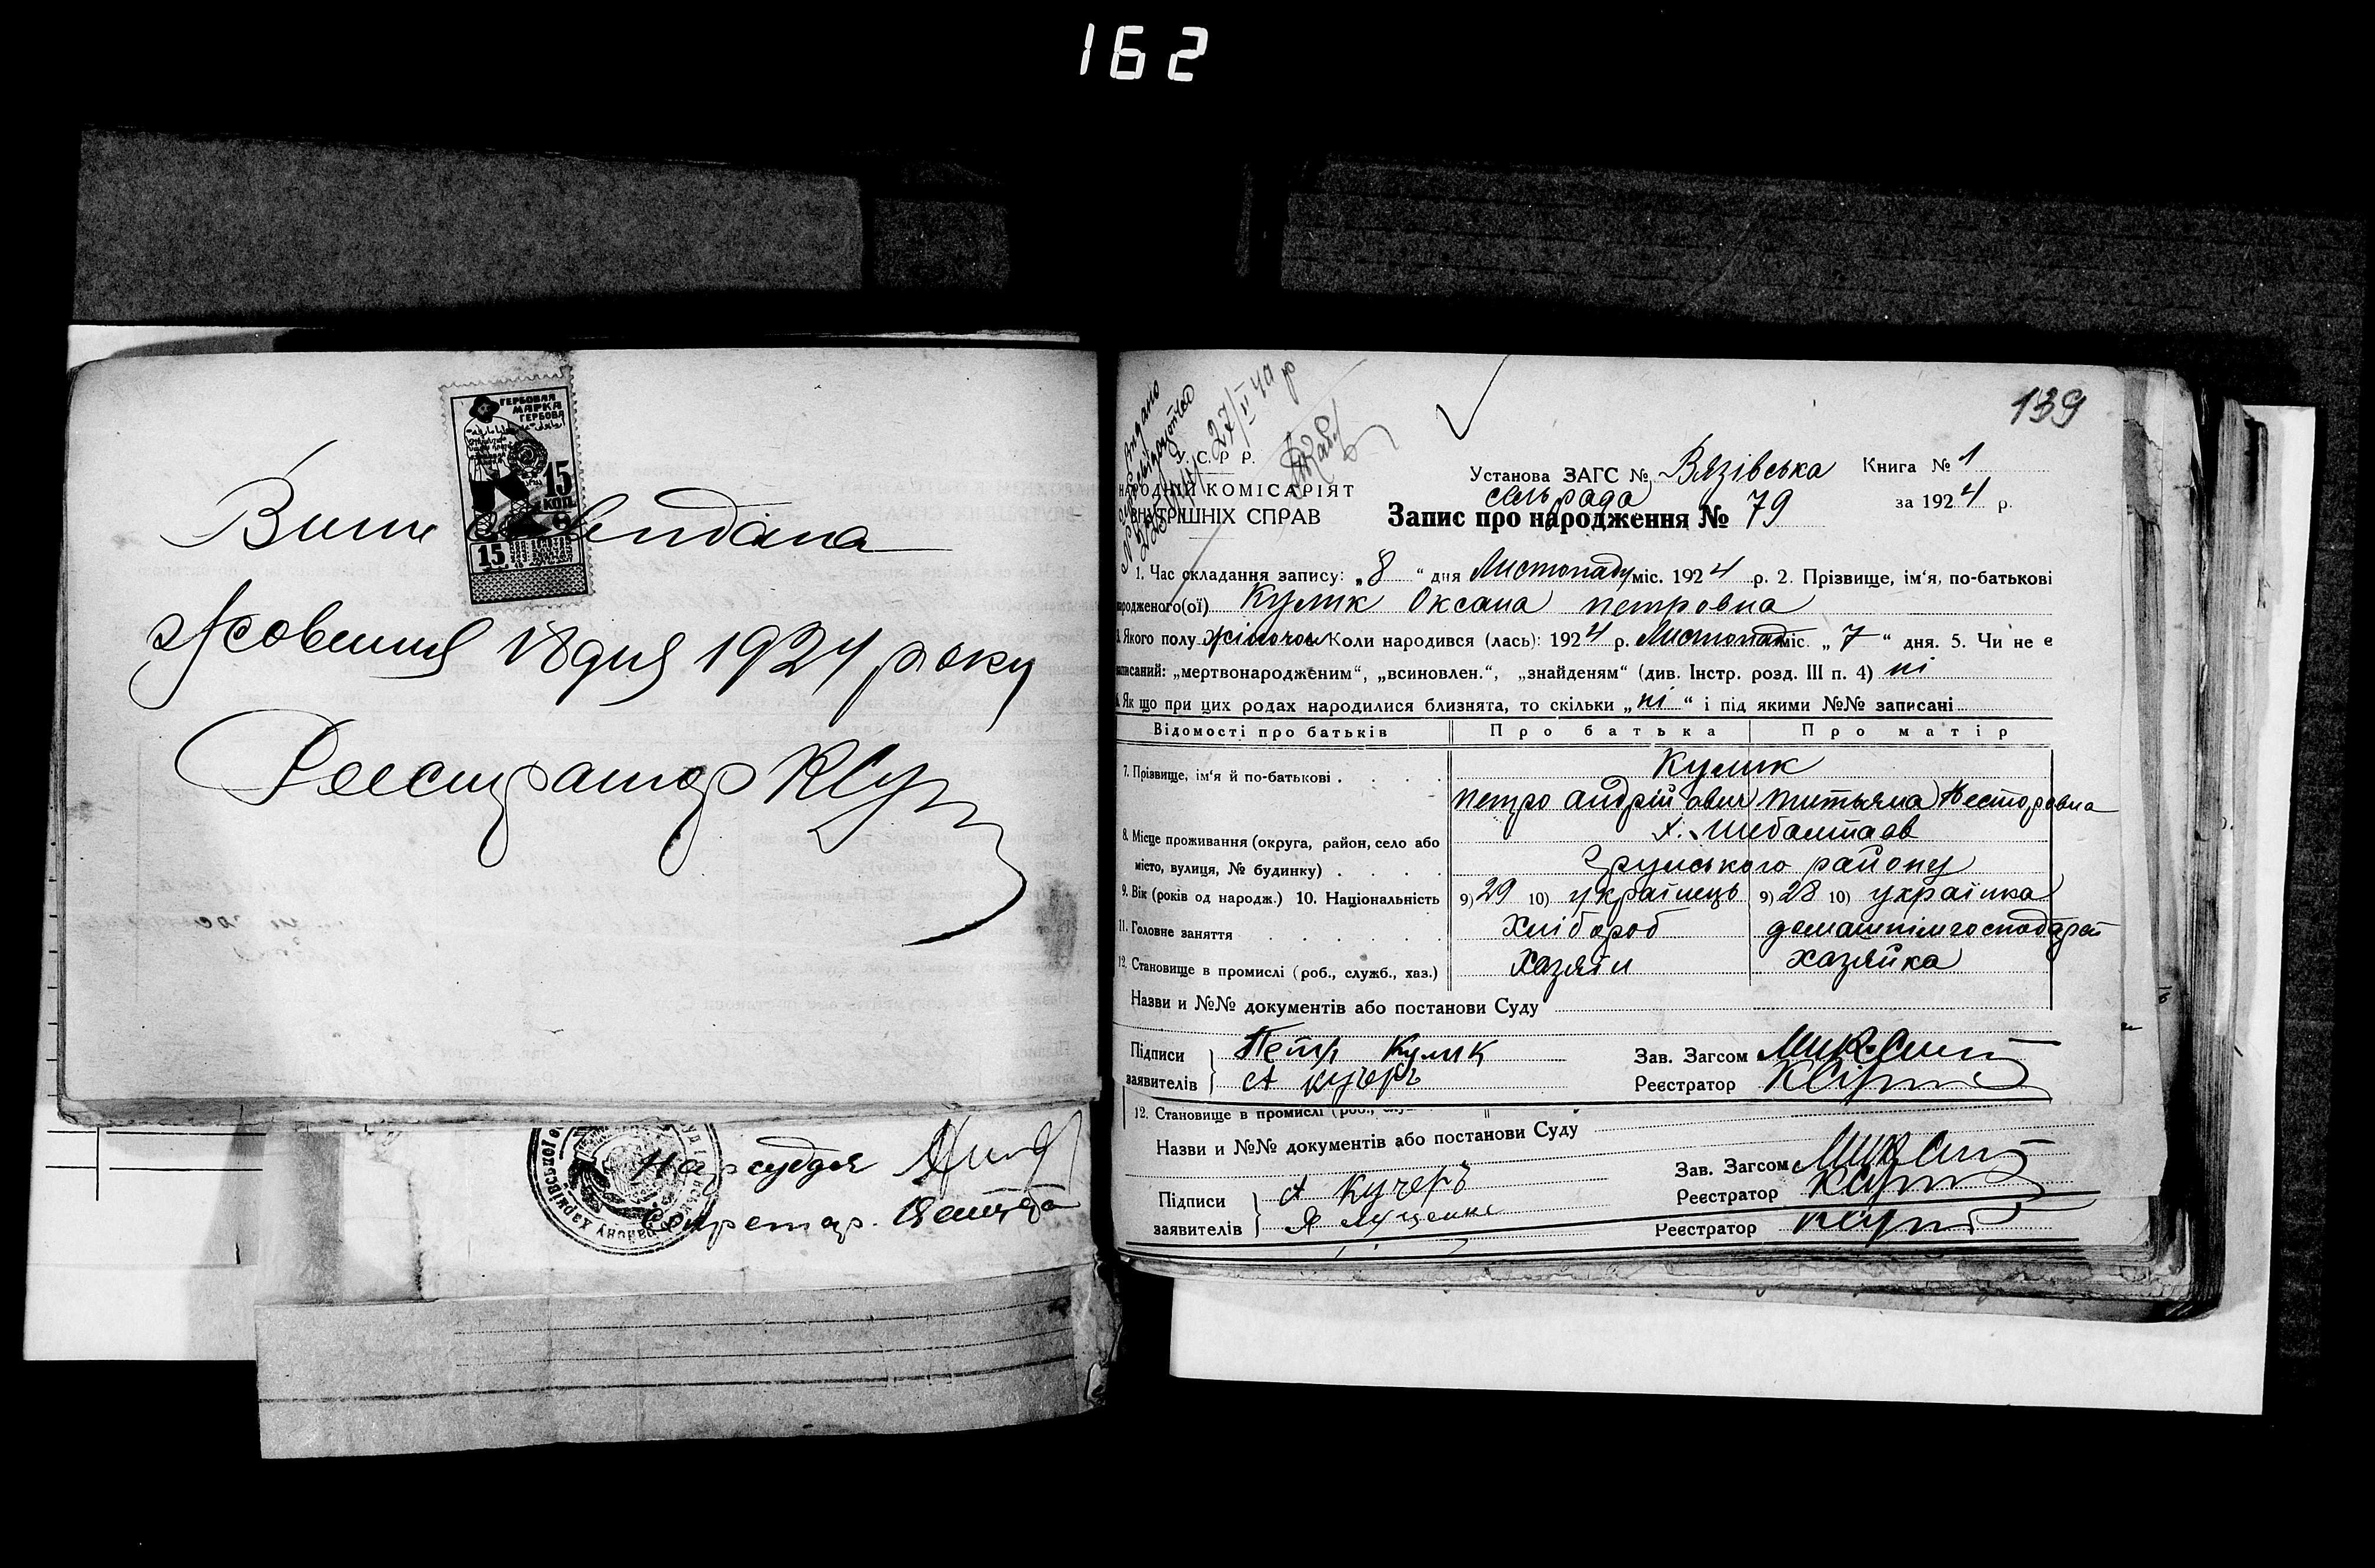 162
ГЕРБОВАЯ
МАРКА
ГЕРБОВА
15
КОП.
15
Жовтня 18 дня 1924 року
Реестратор
Нарсуддя
Секретар.
139
27/II 40 р
У. С. Р. Р.
НАРОДНІЙ КОМІСАРІЯТ
ВНУТРІШНІХ СПРАВ
Установа ЗАГС № Вязівська
сельрада
Книга № 1
за 1924 р.
Запис про народження № 79
1. Час складання запису: „8“ дня Листопаду міс. 1924 р. 2. Прізвище, ім'я, по-батькові
родженого(ої) Кулик Оксана петровна
Якого полу жіночои Коли народився (лась): 1924 р. Листопад міс. „7“ дня. 5. Чи не є
записаний: „мертвонародженим“, „всиновлен.“, „знайденям“ (див. Інстр. розд. III п. 4) ні
6. Як що при цих родах народилися близнята, то скільки „ні“ і під якими №№ записані
Відомості про батьків Про батька Про матір
7. Прізвище, ім'я й по-батькові . . . . Кулик
петро андрійович титьяна Несторовна
8. Місце проживання (округа, район, село або
місто, вулиця, № будинку) . . . . району
9. Вік (років од народж.) 10. Національність 9) 29 10) українець 9) 28 10) українка
11. Головне заняття . . . . . . Хлібороб
12. Становище в промислі (роб., служб., хаз.) Хазяїн хазяйка
Назви и №№ документів або постанови Суду
Підписи
заявителів
Петр Кулик
А Кучеръ
Зав. Загсом
Реєстратор
12. Становище в промислі (роб.,
Назви и №№ документів або постанови Суду
Підписи
заявителів
А Кучеръ
Я Луценко
Зав. Загсом
Реєстратор
Реєстратор